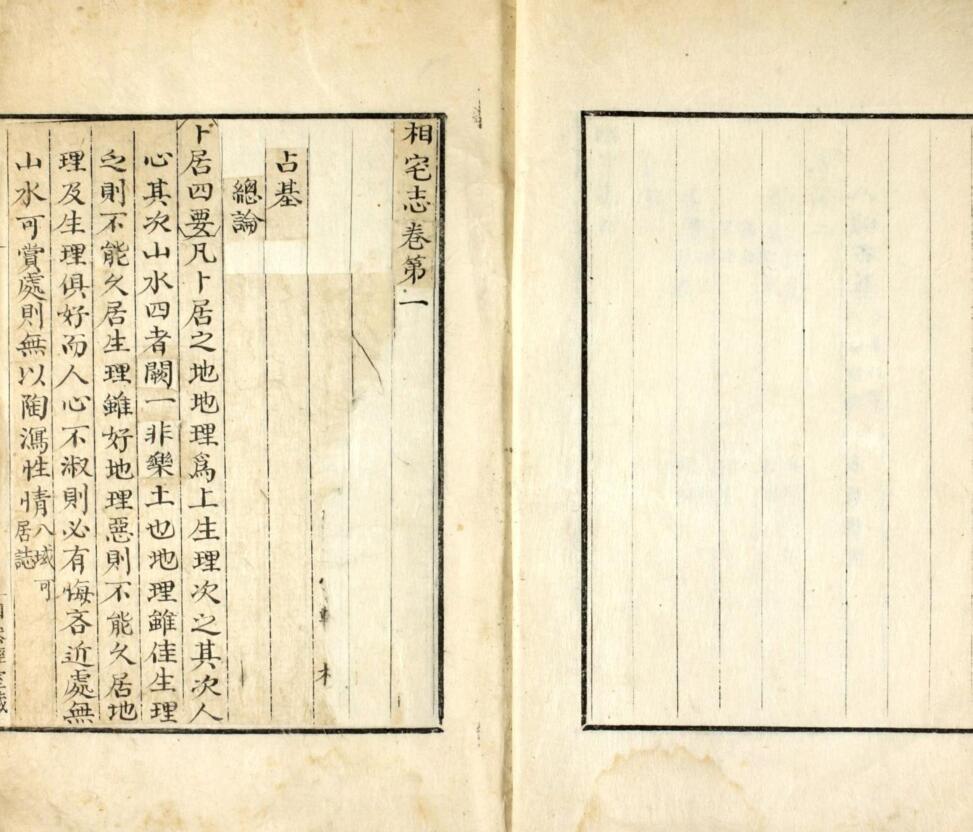 相宅志卷第一
占基
總論
卜居四要凡卜居之地地理爲上生理次之其次人
心其次山水四者闕一非樂土也地理雖佳生理
乏則不能久居生理雖好地理惡則不能久居地
理及生理俱好而人心不淑則必有悔吝近處無
山水可賞處則無以陶瀉性情八域可
居誌